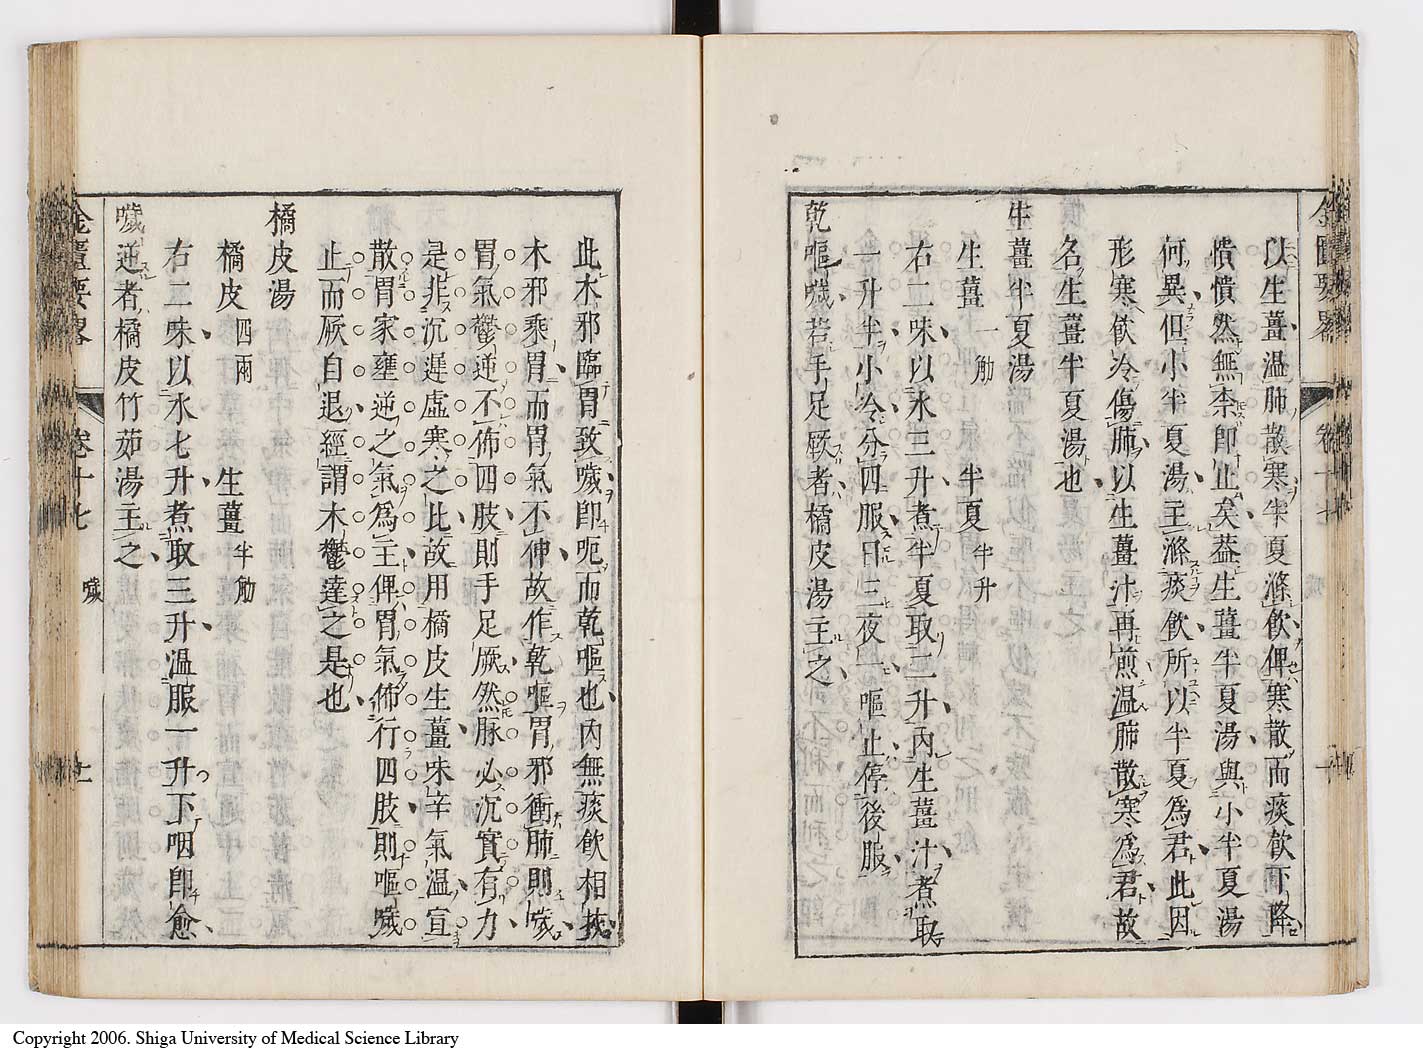 以生薑温肺散寒半夏滌飲俾寒散而痰飲下降
憒憒然無柰即止矣葢生薑半夏湯與小半夏湯
何異但小半夏湯主滌痰飲所以半夏爲君此因
形寒飲冷傷肺以生薑汁再煎温肺散寒爲君故
名生薑半夏湯也
生薑半夏湯
生薑 一觔 半夏 半升
右二味以水三升煮半夏取二升内生薑汁煮取
一升半小冷分四服日三夜一嘔止停後服
乾嘔噦若手足厥者橘皮湯主之
此木邪臨胃致噦即呃而乾嘔也内無痰飲相挾
木邪乘胃而胃氣不伸故作乾嘔胃邪衝肺則噦
胃氣鬱逆不佈四肢則手足厥然脉必沉實有力
是非沉遲虛寒之比故用橘皮生薑味辛氣温宣
散胃家壅逆之氣爲主俾胃氣佈行四肢則嘔噦
止而厥自退經謂木鬱達之是也
橘皮湯
橘皮 四兩 生薑 半觔
右二味以水七升煮取三升温服一升下咽即愈
噦逆者橘皮竹茹湯主之
金匱要畧 卷十七 噦
Copyright 2006. Shiga University of Medical Science Library